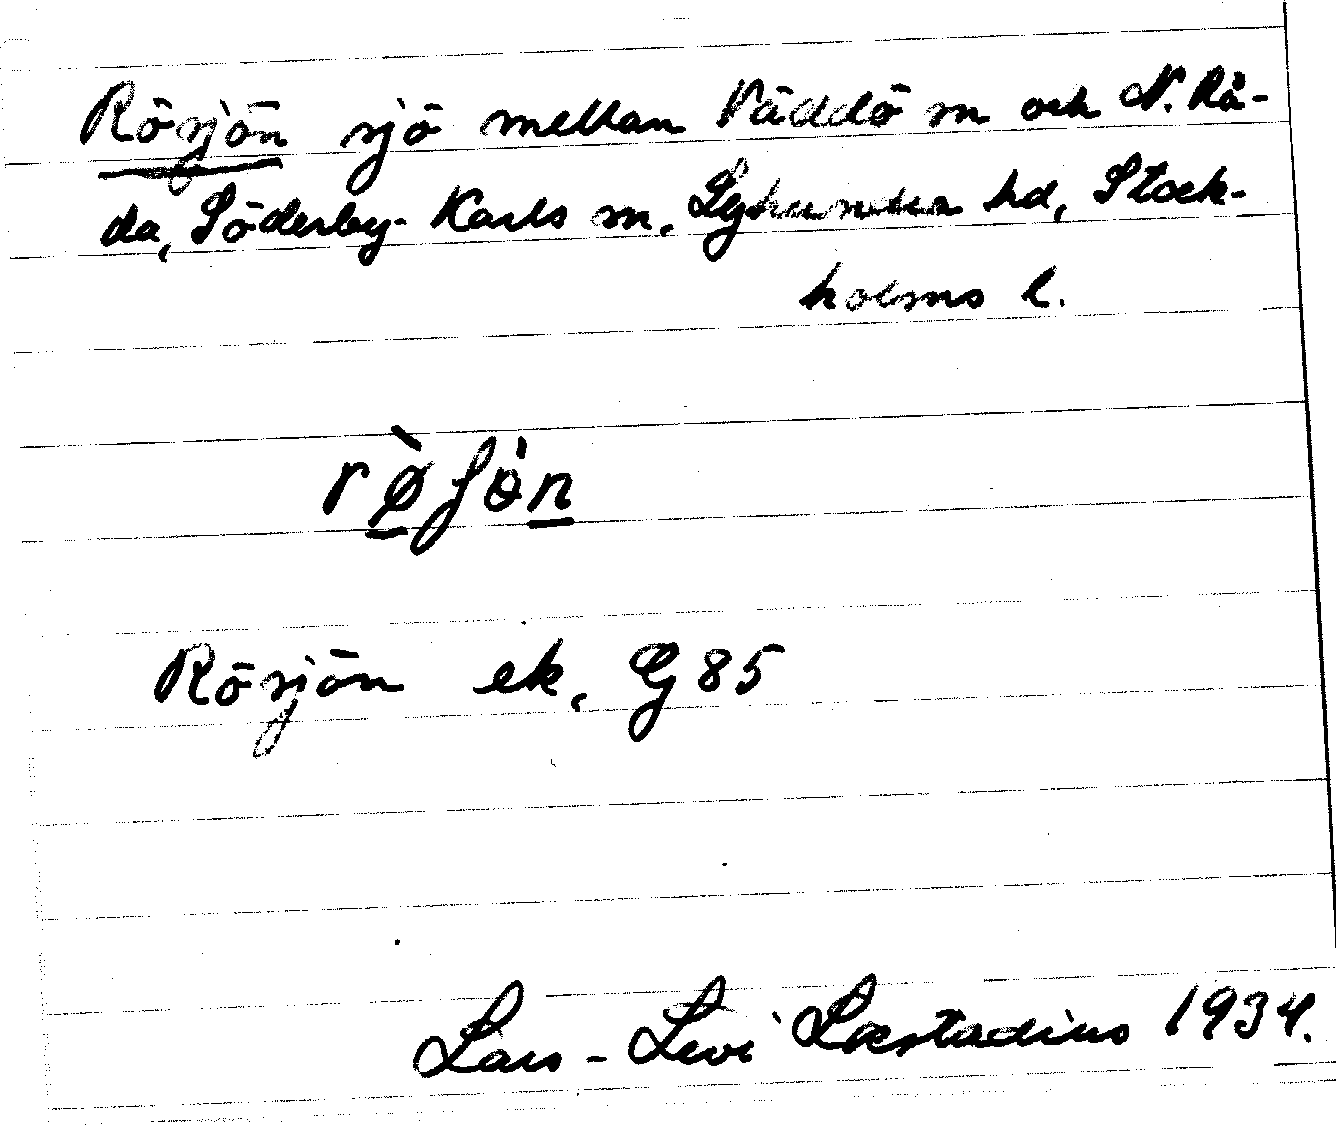 Rösjön sjö mellan Väddö sn och N. Rå-
da, Söderby-Karls sn. Lyhundra hd, Stock-
holms l.
rø̀ʃón
Rösjön ek. G 85
Lars-Levi Læstadius 1934.